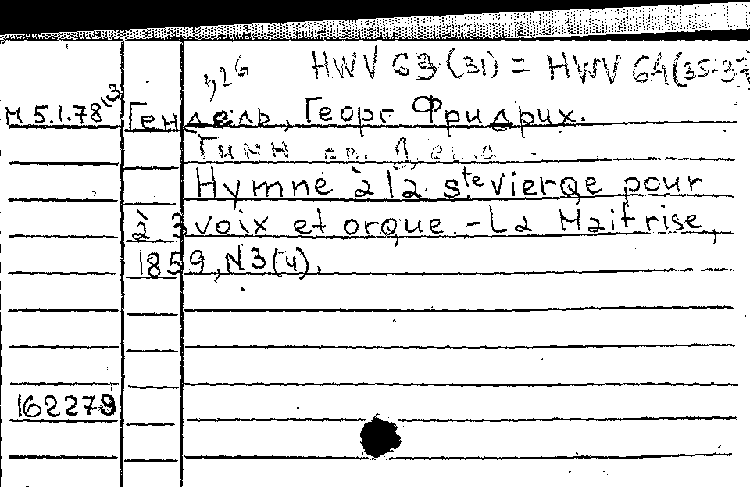 HWV 63 (31) = HWV 64 (35-37
М 5.1.78 Гендель, Георг Фридрих.
Гимн
Hymne à la Ste vierge pour
à 3 voix et orgue. - La Maitrise,
1859, N3 (4).
162279